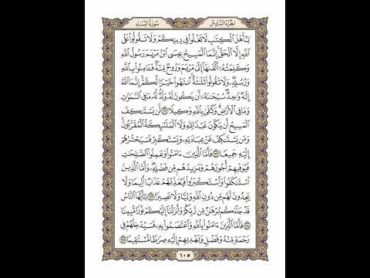 الجزء السادس سورة النساء
يَٰٓأَهْلَ ٱلْكِتَٰبِ لَا تَغْلُوا۟ فِى دِينِكُمْ وَلَا تَقُولُوا۟ عَلَى
ٱللَّهِ إِلَّا ٱلْحَقَّ إِنَّمَا ٱلْمَسِيحُ عِيسَى ٱبْنُ مَرْيَمَ رَسُولُ ٱللَّهِ
وَكَلِمَتُهُۥٓ أَلْقَىٰهَآ إِلَىٰ مَرْيَمَ وَرُوحٌ مِّنْهُ فَـَٔامِنُوا۟ بِٱللَّهِ
وَرُسُلِهِۦ وَلَا تَقُولُوا۟ ثَلَٰثَةٌ ٱنتَهُوا۟ خَيْرًا لَّكُمْ إِنَّمَا ٱللَّهُ
إِلَٰهٌ وَٰحِدٌ سُبْحَٰنَهُۥٓ أَن يَكُونَ لَهُۥ وَلَدٌ لَّهُۥ مَا فِى ٱلسَّمَٰوَٰتِ
وَمَا فِى ٱلْأَرْضِ وَكَفَىٰ بِٱللَّهِ وَكِيلًا ١٧١ لَّن يَسْتَنكِفَ
ٱلْمَسِيحُ أَن يَكُونَ عَبْدًا لِّلَّهِ وَلَا ٱلْمَلَٰٓئِكَةُ ٱلْمُقَرَّبُونَ
وَمَن يَسْتَنكِفْ عَنْ عِبَادَتِهِۦ وَيَسْتَكْبِرْ فَسَيَحْشُرُهُمْ
إِلَيْهِ جَمِيعًا ١٧٢ فَأَمَّا ٱلَّذِينَ ءَامَنُوا۟ وَعَمِلُوا۟ ٱلصَّٰلِحَٰتِ
فَيُوَفِّيهِمْ أُجُورَهُمْ وَيَزِيدُهُم مِّن فَضْلِهِۦ وَأَمَّا ٱلَّذِينَ
ٱسْتَنكَفُوا۟ وَٱسْتَكْبَرُوا۟ فَيُعَذِّبُهُمْ عَذَابًا أَلِيمًا وَلَا
يَجِدُونَ لَهُم مِّن دُونِ ٱللَّهِ وَلِيًّا وَلَا نَصِيرًا ١٧٣ يَٰٓأَيُّهَا ٱلنَّاسُ
قَدْ جَآءَكُم بُرْهَٰنٌ مِّن رَّبِّكُمْ وَأَنزَلْنَآ إِلَيْكُمْ نُورًا مُّبِينًا
١٧٤ فَأَمَّا ٱلَّذِينَ ءَامَنُوا۟ بِٱللَّهِ وَٱعْتَصَمُوا۟ بِهِۦ فَسَيُدْخِلُهُمْ فِى
رَحْمَةٍ مِّنْهُ وَفَضْلٍ وَيَهْدِيهِمْ إِلَيْهِ صِرَٰطًا مُّسْتَقِيمًا ١٧٥
١٠٥